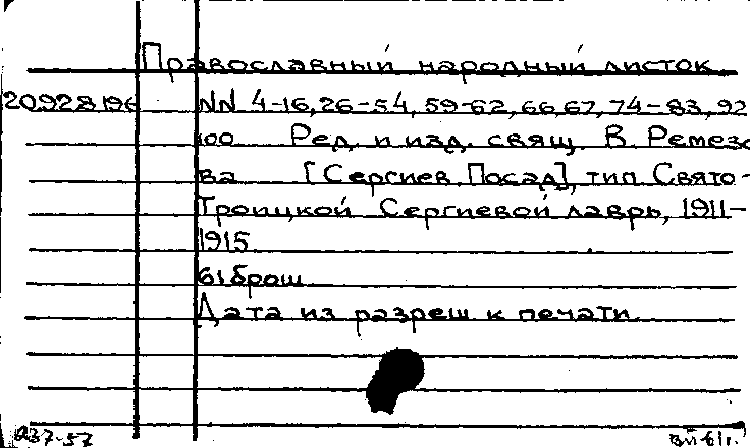 Православный народный листок
20928196 NN 4-16, 26-54, 59-62, 66, 67, 74-83, 92
100 Ред. и изд. свящ. В. Ремезо
ва [Сергиев Посад], тип Свято-
Троицкой Сергиевой лавры, 1911-
1915.
61 брош
Дата из разреш к печати.
937-57